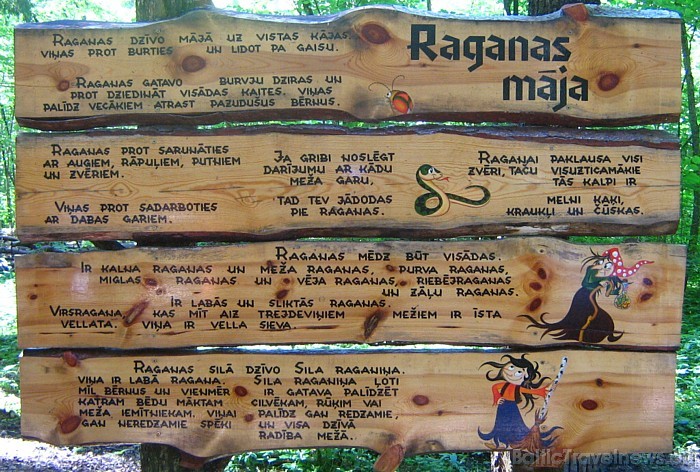 Raganas māja
Raganas dzīvo mājā uz vistas kājas,
viņas prot burties un lidot pa gaisu.
Raganas gatavo burvju dziras un
prot dziedināt visādas kaites. Viņas
palīdz vecākiem atrast pazudušus bērnus.
Raganas prot sarunāties
ar augiem, rāpuļiem, putniem
un zvēriem.
Viņas prot sadarboties
ar dabas gariem.
Ja gribi noslēgt
darījumu ar kādu
meža garu,
tad tev jādodas
pie raganas.
Raganai paklausa visi
zvēri, taču visuzticamākie
tās kalpi ir
melni kaķi,
kraukļi un čūskas.
Raganas mēdz būt visādas.
Ir kalna raganas un meža raganas, purva raganas,
miglas raganas un vēja raganas, riebējraganas
un zāļu raganas.
Ir labās un sliktās raganas.
Virsragana, kas mīt aiz trejdeviņiem mežiem ir īsta
vellata. Viņa ir vella sieva.
Raganas silā dzīvo Sila raganiņa.
Viņa ir labā ragana. Sila raganiņa ļoti
mīl bērnus un vienmēr ir gatava palīdzēt
katram bēdu māktam cilvēkam, rūķim vai
meža iemītniekam. Viņai palīdz gan redzamie,
gan neredzamie spēki un visa dzīvā
radība mežā.
BalticTravelnews.com